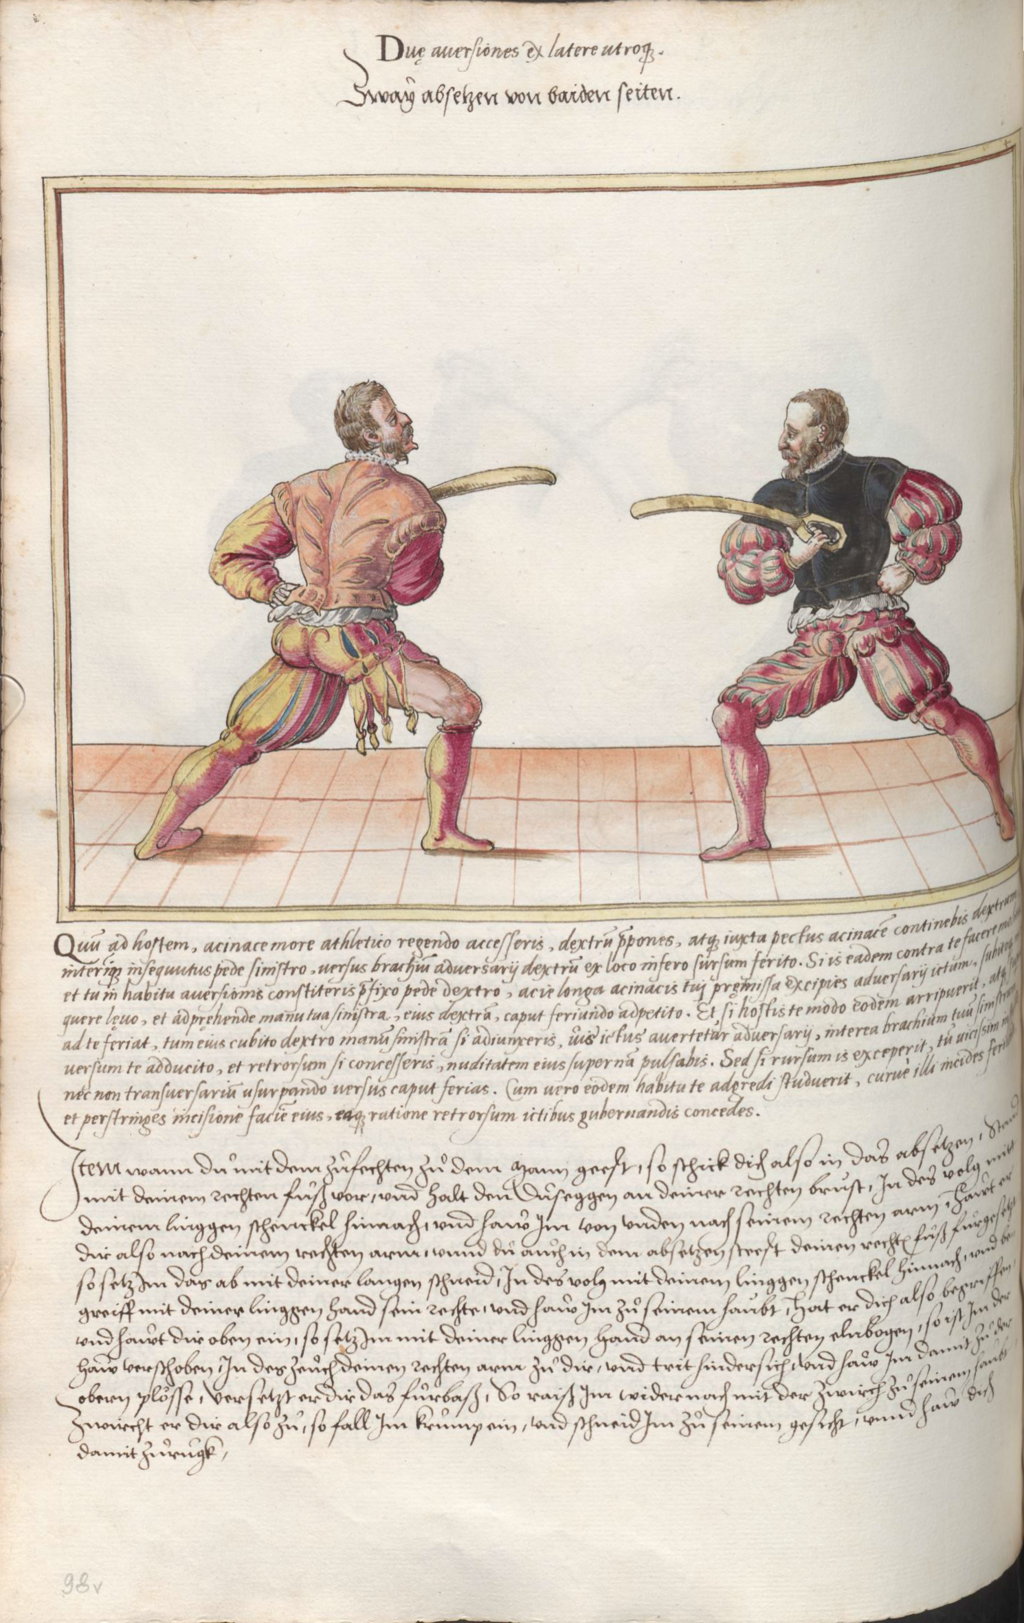 Duę auersiones ex latere utroq̃.
Zwaÿ absetzen von baiden seiten.
Quũ ad hostem, acinace more athletico regendo accesseris, dextrũ p̃pones, atq̃ iuxta pectus acinacẽ continebis dextrum
interimq̃ insequutus pede sinistro, uersus brachiũ aduersarij dextrũ ex loco infero sursum ferito. Si is eadem contra te facere
et tu in habitu auersionis constiteris p̃fixo pede dextro, acie longa acinacis tuj pręmissa excipies aduersarij ictum, subito
quere lęuo, et adprehende manu tua sinistra, eius dextrã, caput feriundo adpetito. Et si hostis te modo eodem arripuerit, atq̃
ad te feriat, tum eius cubito dextro manũ sinistrã si adiunxeris, ictus auertetur aduersarij, interea brachium tuũ
uersum te adducito, et retrorsum si concesseris, nuditatem eius supernã pulsabis. Sed si rursum is exceperit, tu uicissim
nec non transuersariũ usurpando uersus caput ferias. Cum uero eodem habitu te adgredi studuerit, curue illi incides
et perstringes incisione faciẽ eius, eaq̃ ratione retrorsum ictibus gubernandis concedes.
Item wann du mit dem zufechten zu dem Mann geest, so schick dich also in das absetzen, stand
mit deinem rechten fuß vor, unnd halt den Duseggen an deiner rechten brust, In des volg mit
deinem linggen schenckel hinnach, unnd haw Im von unden nach seinem rechten arm, Hawt er
dir also nach deinem rechten arm, unnd du auch in dem absetzen steest deinen recht fuß furgesetzt
so setz Im das ab mit deiner langen schneid, In des volg mit deinem linggen schenckel hinnach, unnd
greiff mit deiner linggen hand sein rechte, unnd haw Im zu seinem haubt, Hat er dich also begriffen
unnd hawt dir oben ein, so setz Im mit deiner linggen hand an seinen rechten elnbogen, so ist Im der
haw verschoben, In des zeuch deinen rechten arm zu dir, unnd trit hindersich, unnd haw Im damit zu der
obern plösse, versetzt er dir das fürbaß, so raiß Im wider nach mit der zwirch zu seinem haubt
zwircht er dir also zu, so fall Im krump ein, unnd schneid Im zu seinem gesicht, unnd haw dich
damit zurugk,
98v